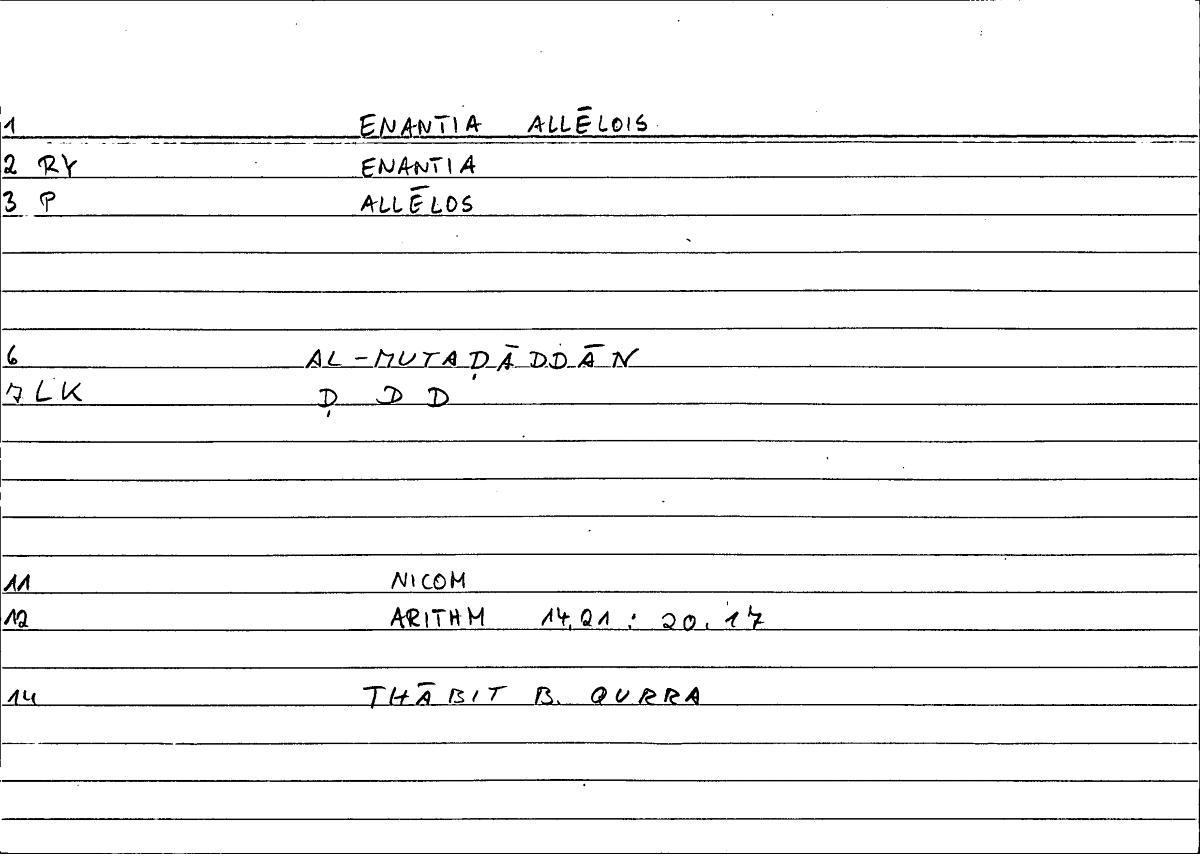 1 ENANTIA ALLĒLOIS
2 RY ENANTIA
3 P ALLĒLOS
6 AL-MUTAḌĀDDĀN
7 LK Ḍ D D
11 NICOM
12 ARITHM 14,21 : 20.17
14 THĀBIT B. QURRA